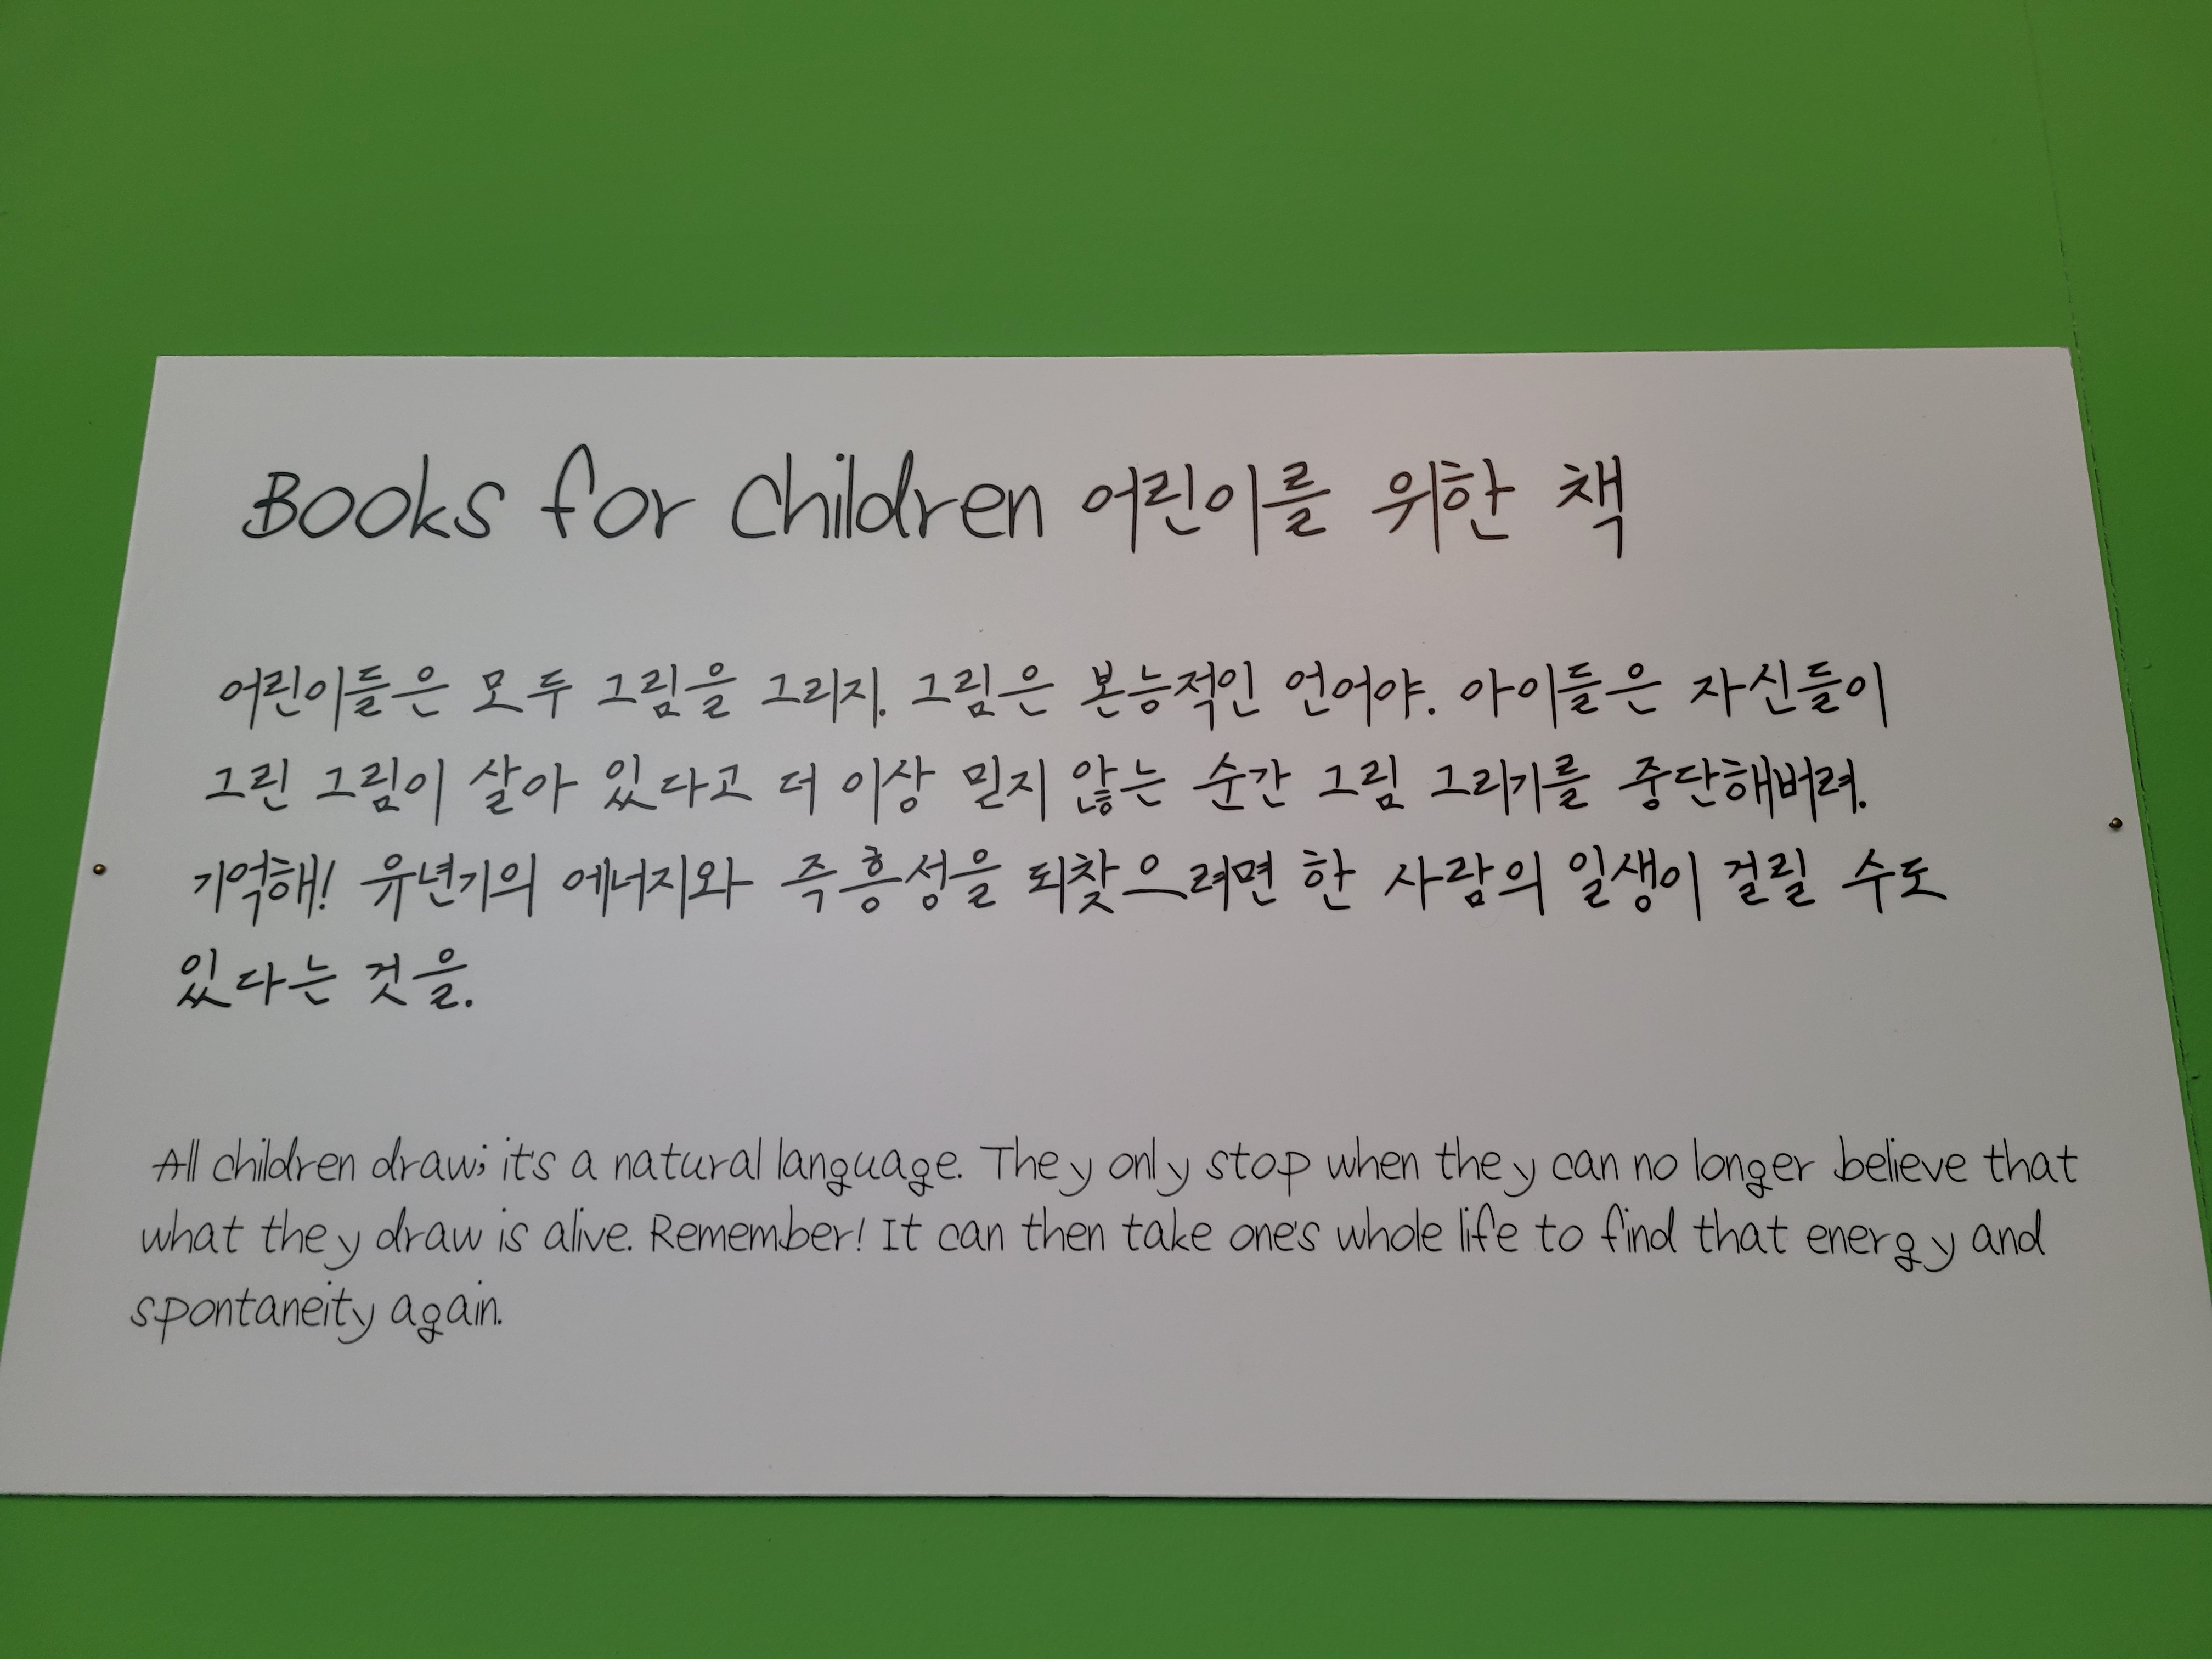 Books for Children 어린이를 위한 책
어린이들은 모두 그림을 그리지. 그림은 본능적인 언어야. 아이들은 자신들이
그린 그림이 살아 있다고 더 이상 믿지 않는 순간 그림 그리기를 중단해버려.
기억해! 유년기의 에너지와 즉흥성을 되찾으려면 한 사람의 일생이 걸릴 수도
있다는 것을.
All children draw; it's a natural language. They only stop when they can no longer believe that
what they draw is alive. Remember! It can then take one's whole life to find that energy and
spontaneity again.